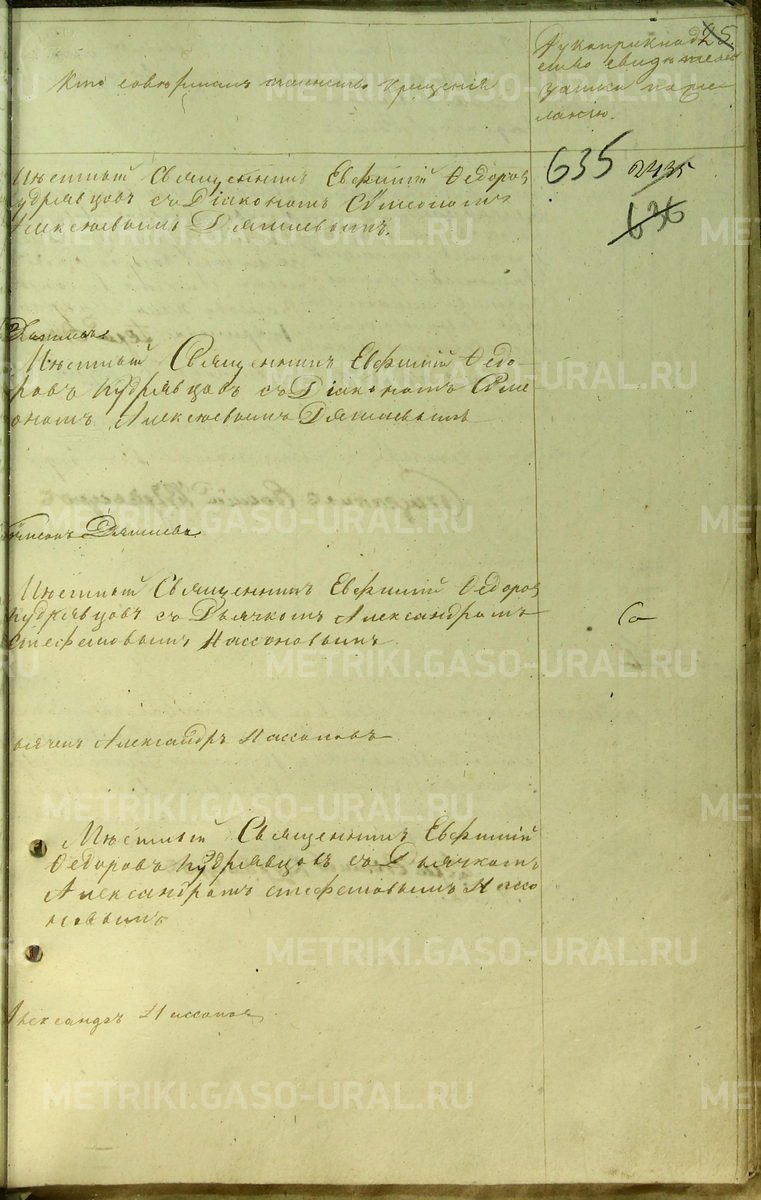 Кто совершалъ таинство крещенія
Рукоприклад
ство свидѣтелей
записи по же
ланію.
25
635 2435
636
Мѣстный Священникъ Евфимій Ѳедоров
Кудрявцовъ съ Діакономъ Сѵмеономъ
Алексѣевымъ
Мѣстный Священникъ Евфимій Ѳедо-
ровъ Кудрявцовъ съ Діакономъ Сѵме
ономъ Алексѣевымъ
Мѣстный Священникъ Евфимій Ѳедоров
Кудрявцовъ съ Дьячкомъ Александромъ
Стефановымъ Нассоновымъ
Дьячекъ Александръ Нассоновъ
Мѣстный Священникъ Евфимій
Ѳедоровъ Кудрявцовъ съ Дьячкомъ
Александромъ Стефановымъ Нассо
новымъ
Александръ Нассонов
METRIKI.GASO-URAL.RU